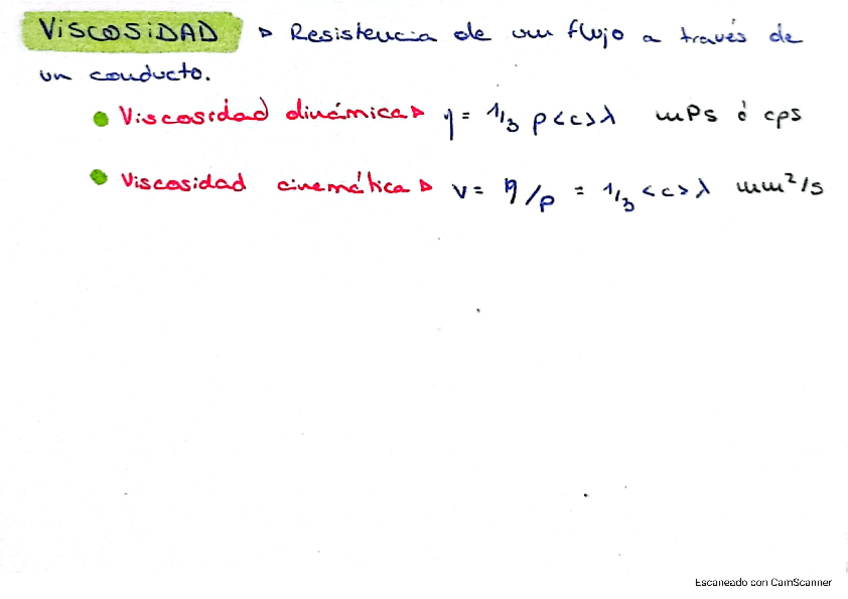 VISCOSIDAD ▷ Resistencia de un flujo a través de
un conducto.
• Viscosidad dinámica ▷ η = 1/3 ρ <c> λ mPs ó cps
• Viscosidad cinemática ▷ ν = η/ρ = 1/3 <c> λ mm²/s
Escaneado con CamScanner